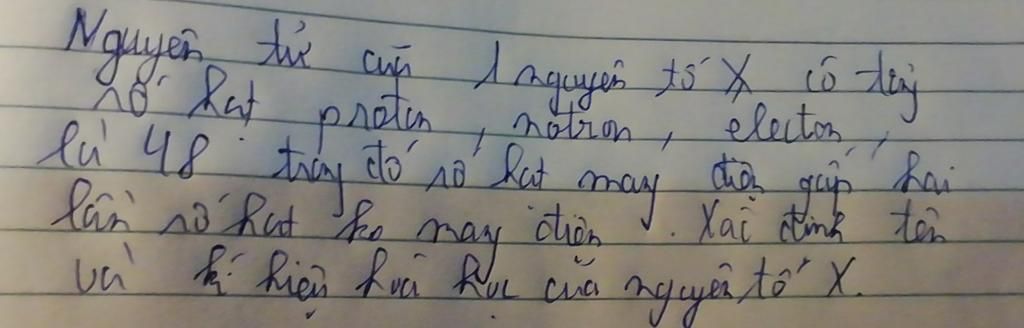 Nguyên tử của 1 nguyên tố X có tổng
số hạt protin, notron, electon,
là 48 trong đó số hạt mang điện gấp hai
lần số hạt ko mang điện. Xác định tên
và kí hiệu hoá học của nguyên tố X.